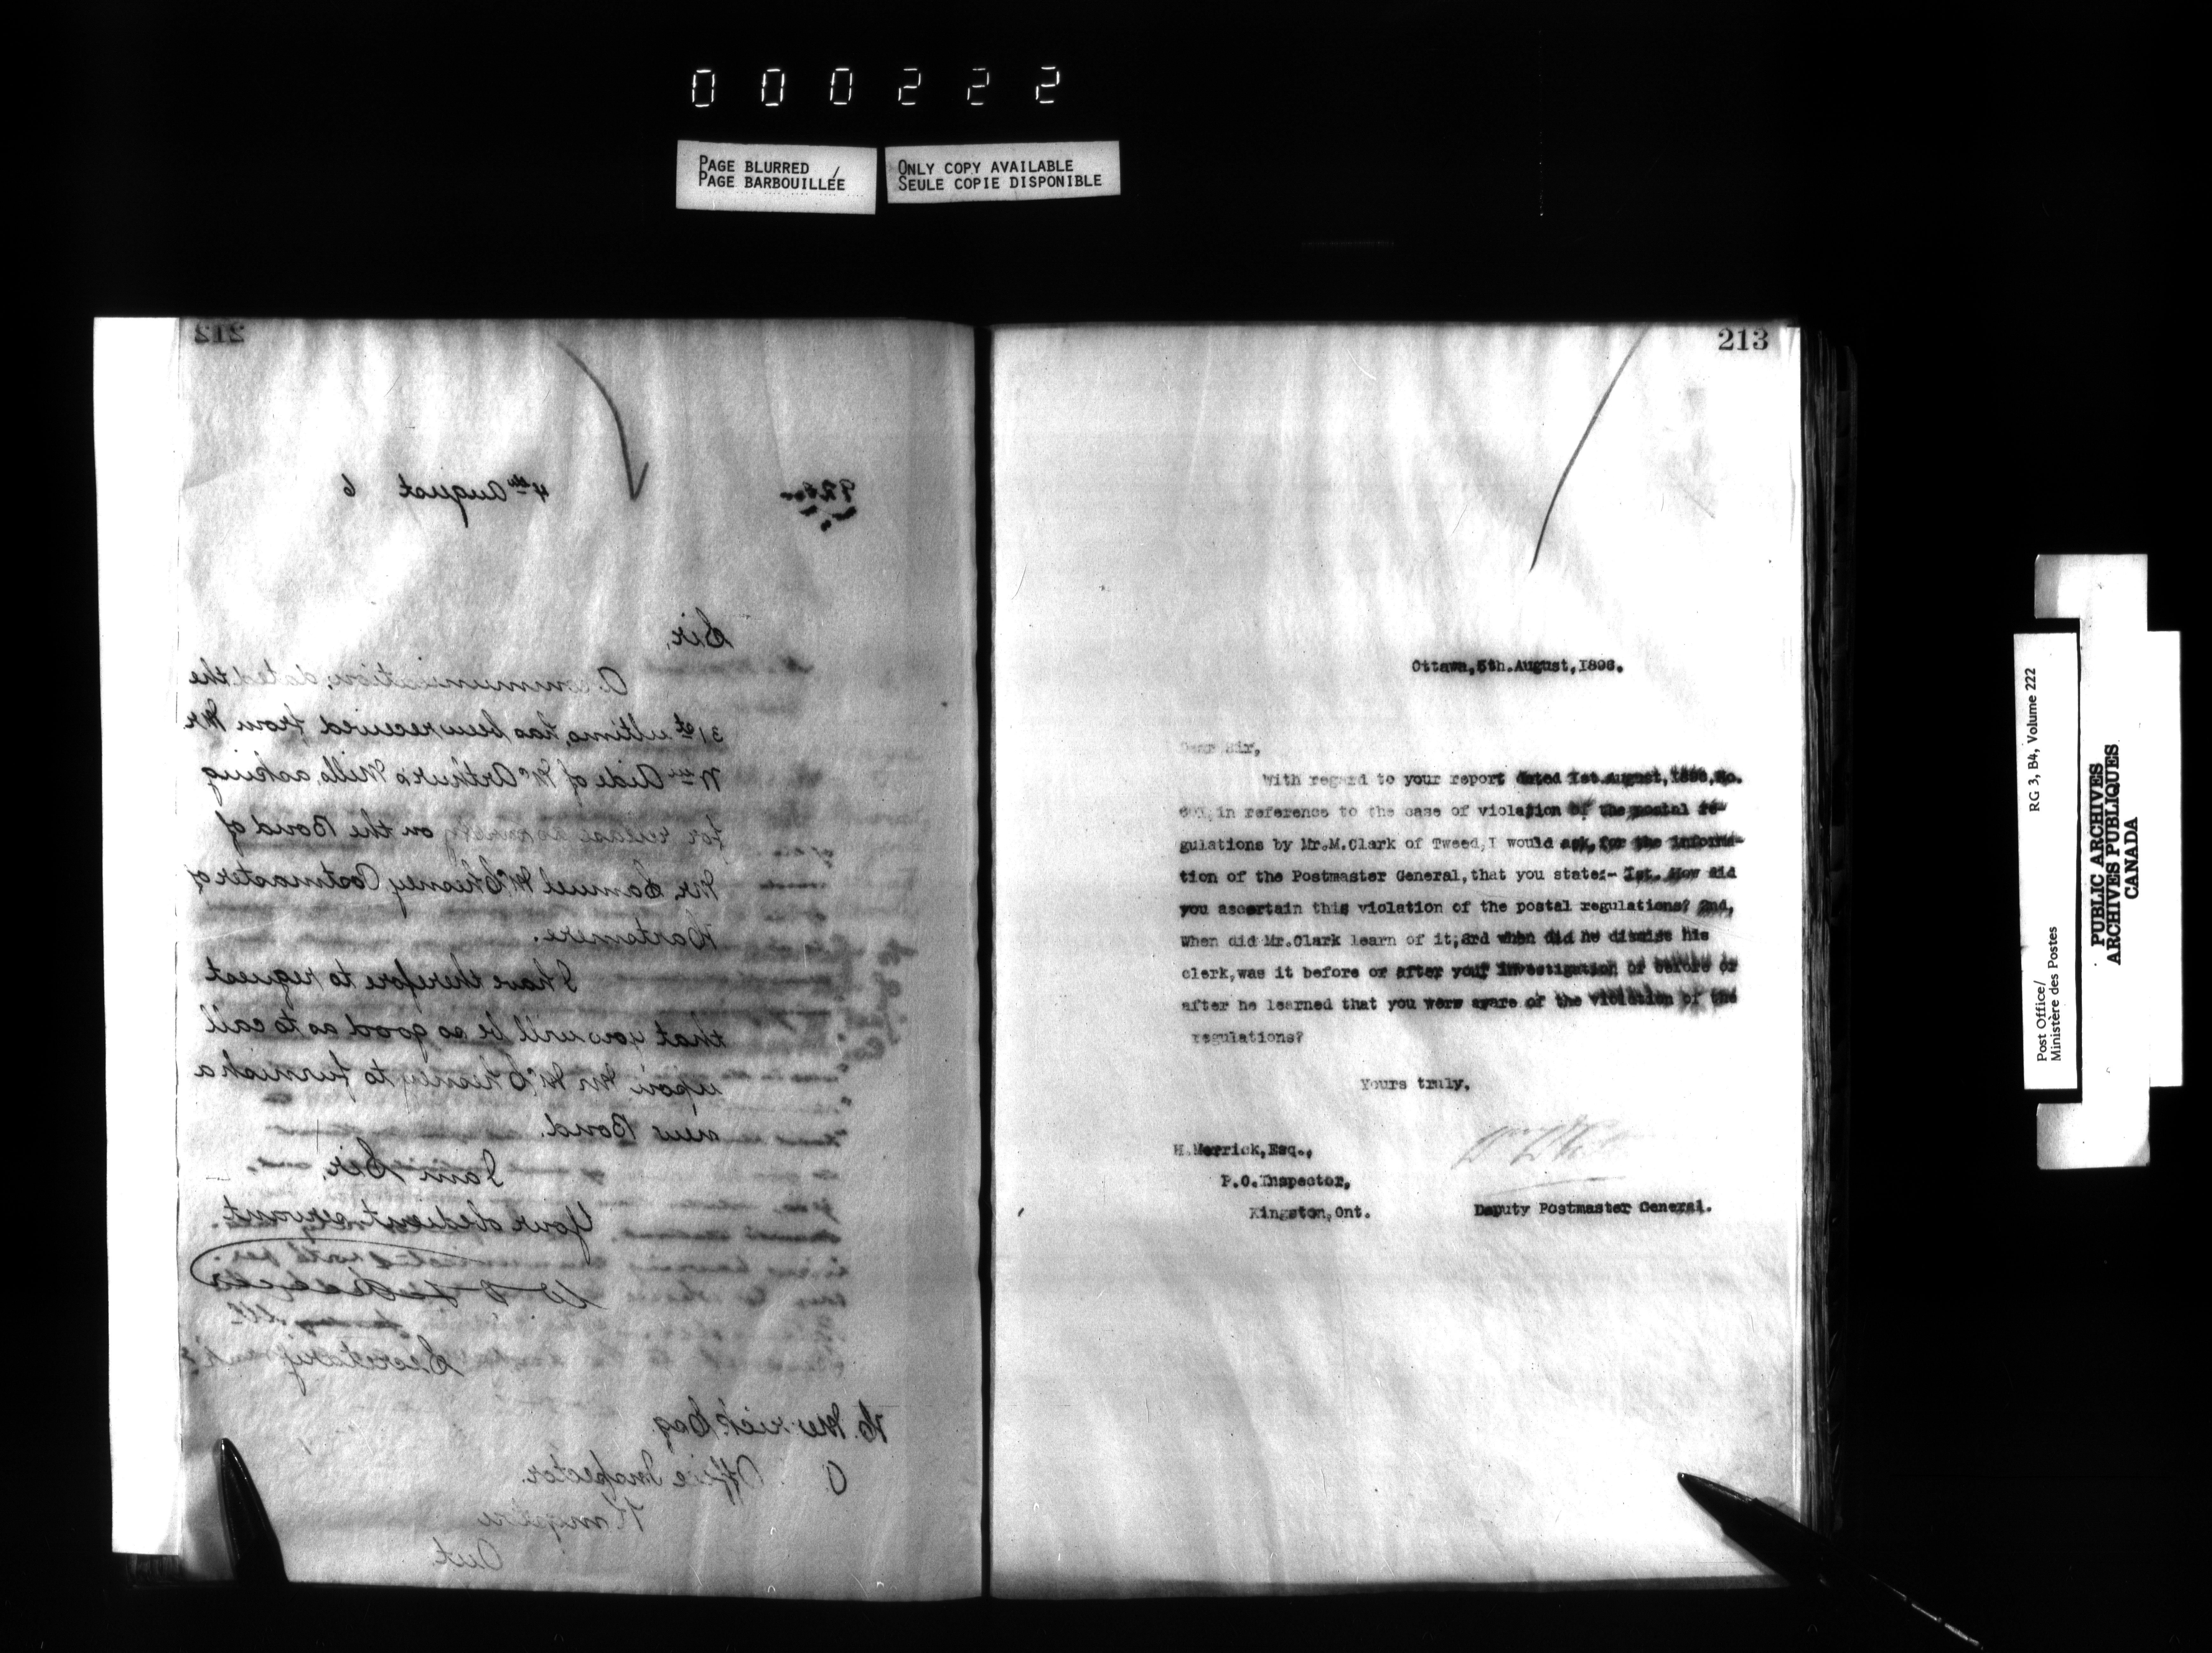 000222
PAGE BLURRED
PAGE BARBOUILLÉE
ONLY COPY AVAILABLE
SEULE COPIE DISPONIBLE
212
4th August 6
Sir,
A communication, dated the
31st ultimo, has been received from Mr
Wm Aide of McArthur's Mills, asking
for release as surety on the Bond of
Mr. Samuel McChesney Postmaster of
I have therefore to request
that you will be so good as to call
upon Mr McChesney to furnish a
new Bond.
I am Sir,
Your obedient servant
Secretary
H. Merrick Esq
Office Inspector.
Kingston
Ont.
213
Ottawa, 5th. August, 1896.
Dear Sir,
With regard to your report dated 1st. August, 1896, No.
in reference to the case of violation of the postal re-
gulations by Mr. M. Clark of Tweed, I would ask, for the informa-
tion of the Postmaster General, that you state:- 1st. How did
you ascertain this violation of the postal regulations? 2nd,
When did Mr. Clark learn of it; 3rd when did he dismiss his
clerk, was it before or after your investigation or before or
after he learned that you were aware of the violation of the
regulations?
Yours truly,
H. Merrick, Esq.,
P.O. Inspector,
Kingston, Ont.
Deputy Postmaster General.
RG 3, B4, Volume 222
Post Office/
Ministère des Postes
PUBLIC ARCHIVES
ARCHIVES PUBLIQUES
CANADA